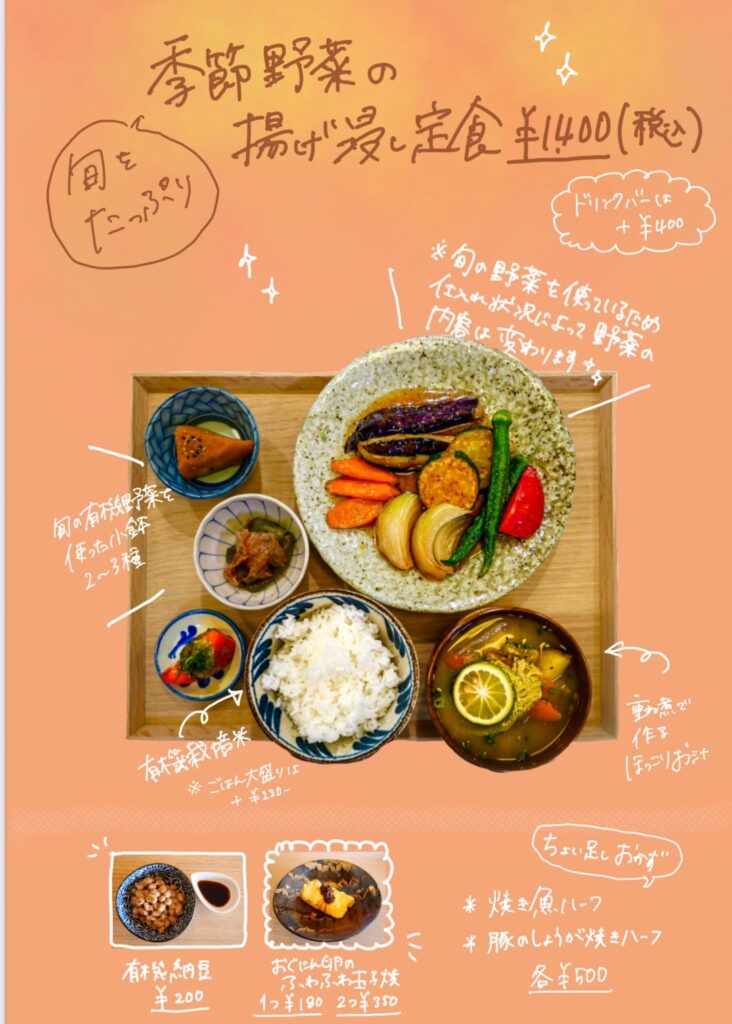 季節野菜の
揚げ浸し定食 ¥1,400(税込)
旬を
たっぷり
ドリンクバーは
+ ¥400
※旬の野菜を使っているため
仕入れ状況によって野菜の
内容は変わります
旬の有機野菜を
使った小鉢
2〜3種
有機栽培米
※ごはん大盛りは
+ ¥230-
重ね煮で
作る
ほっこりお汁
ちょい足しおかず
* 焼き魚ハーフ
* 豚のしょうが焼きハーフ
各¥500
有機納豆
¥200
ふわふわ玉子焼
1つ¥180 2つ¥350